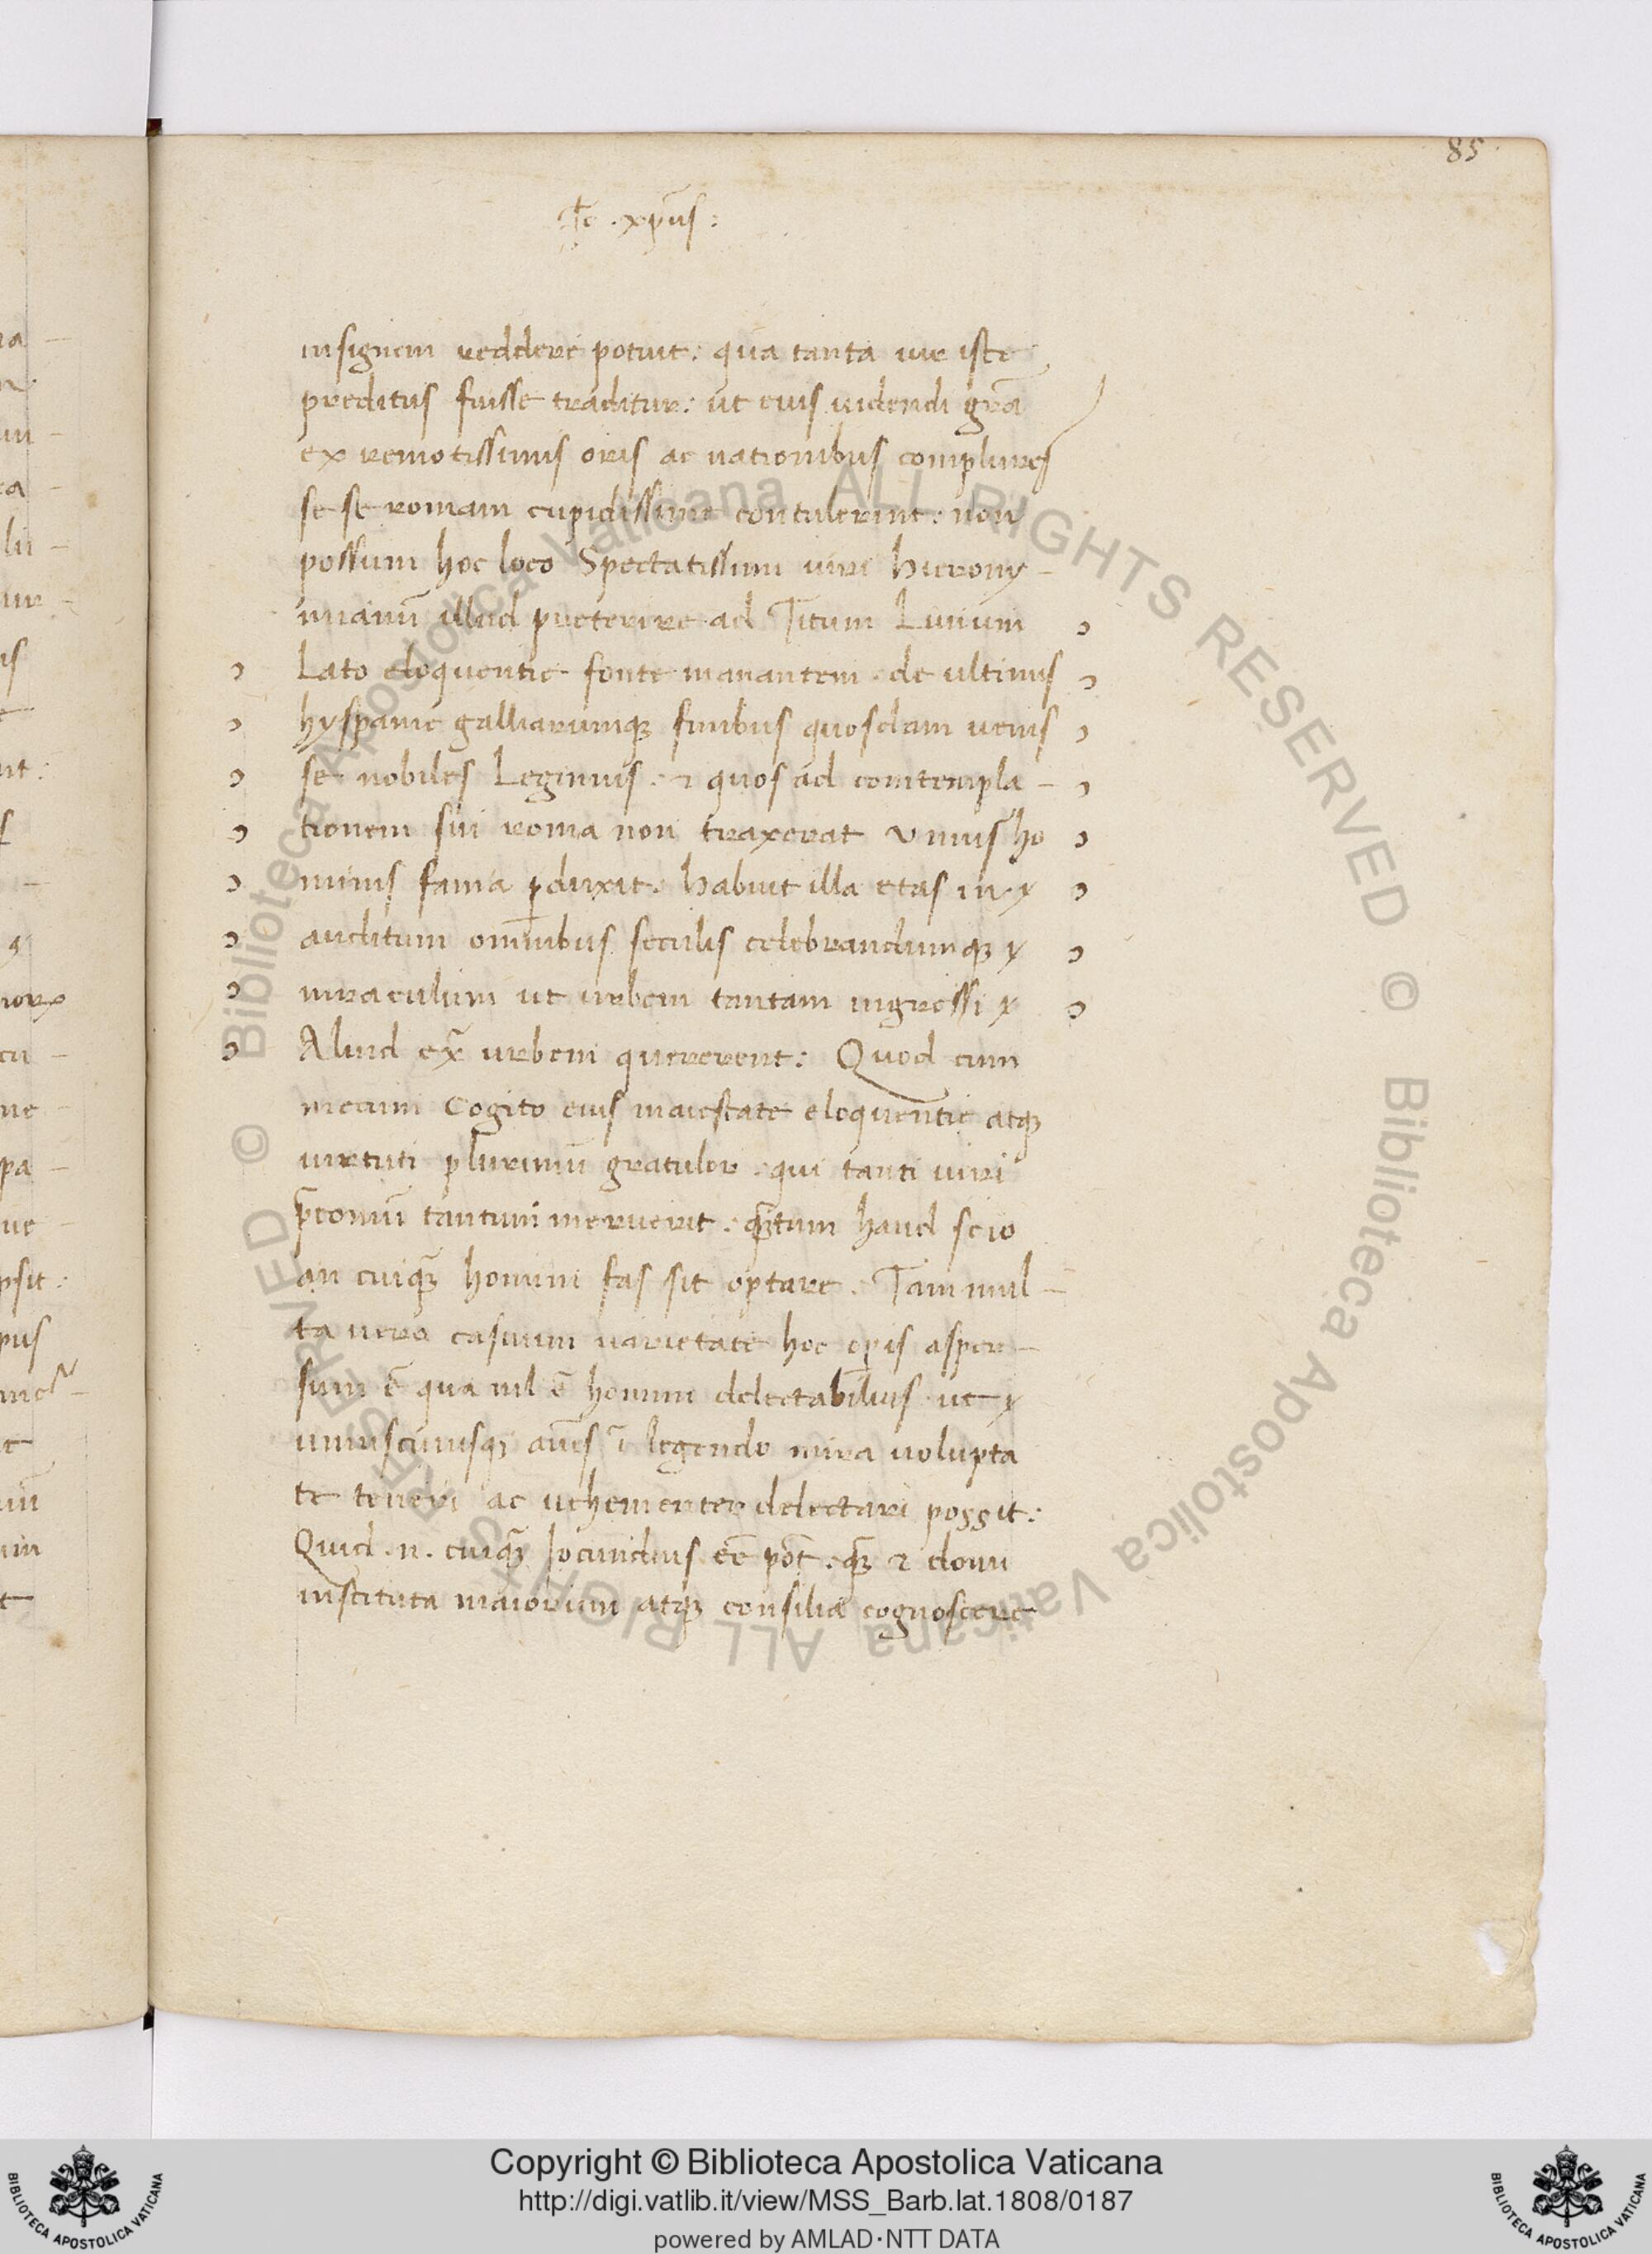 85
xp̄us :
insignem reddere potuit : qua tanta uir iste
preditus fuisse traditur : ut eius uidendi grā
ex remotissimis oris ac nationibus complures
se se romam cupidissime contulerint : non
possum hoc loco Spectatissimi uiri hierony -
mianū illud preterire ad Titum Liuium
Lato eloquentie fonte manantem . de ultimis
hyspanie galliarumqꝫ finibus quosdam uenis
se nobiles Legimus . ⁊ quos ad contempla -
tionem sui roma non traxerat Vnius ho
minis fama ꝑduxit . habuit illa etas in
auditum omnibus seculis celebrandumqꝫ
miraculum ut urbem tantam ingressi
Aliud ex̄ urbem quererent : Quod cum
mecum Cogito eius maiestate eloquentie atqꝫ
uirtuti plurimū gratulor . qui tanti uiri
p̄conium tantum meruerit . qꝫ̄tum haud scio
an cuiqꝫ̄ homini fas sit optare . Tam mul -
ta uero casuum uarietate hoc opis asper -
sum ē qua nil ē homini delectabilius ut
uniuscuiusqꝫ aūes ī legendo mira uolupta
te teneri ac uehementer delectari possit :
Quid . n . cuiqꝫ̄ Jocundius eē pōt . qꝫ̄ ⁊ domi
instituta maiorum atqꝫ consilia cognoscere
© Biblioteca Apostolica Vaticana ALL RIGHTS RESERVED © Biblioteca Apostolica Vaticana ALL RIGHTS RESERVED
Copyright © Biblioteca Apostolica Vaticana
http://digi.vatlib.it/view/MSS_Barb.lat.1808/0187
powered by AMLAD·NTT DATA
BIBLIOTECA APOSTOLICA VATICANA
BIBLIOTECA APOSTOLICA VATICANA